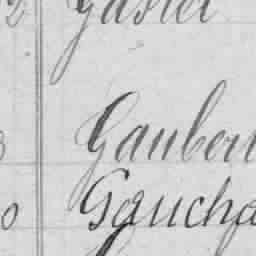 2 Gastel
Gauber
0 Gaucha